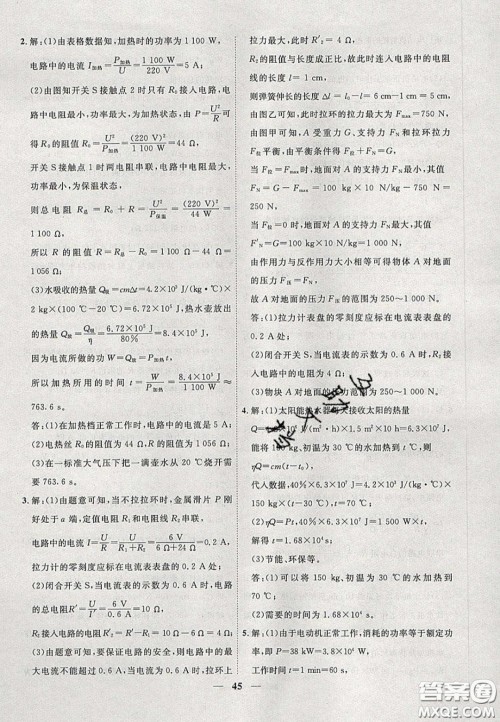 2.解：(1)由表格数据知，加热时的功率为 1 100 W，
电路中的电流 I加热＝P加热/U＝1 100 W/220 V＝5 A；
(2)由图知开关 S 接触点 2 时只有 R0 接入电路中，电
路中电阻最小，功率最大，为加热状态，由 P＝U²/R可
得 R0 的阻值 R0＝U²/P加热＝(220 V)²/1 100 W＝44 Ω，
开关 S 接触点 1 时两电阻串联，电路中电阻最大，电
功率最小，为保温状态，
则总电阻 R0＋R＝U²/P保温＝(220 V)²/44 W＝1 100 Ω，
所以 R 的阻值 R＝R总－R0＝1 100 Ω－44 Ω＝
1 056 Ω；
(3)水吸收的热量 Q吸＝cmΔt＝4.2×10³ J/(kg·℃)×
2 kg×(100 ℃－20 ℃)＝6.72×10⁵ J，热水壶放出
的热量 Q放＝Q吸/η＝6.72×10⁵ J/80%＝8.4×10⁵ J，
因为电流所做的功 W＝P加热t＝Q放，
所以加热所用的时间 t＝W/P加热＝8.4×10⁵ J/1 100 W≈
763.6 s。
答：(1)加热档正常工作时，电路中电流是 5 A；
(2)电热丝 R0 的阻值为 44 Ω，R 的阻值为 1 056 Ω；
(3)在一标准大气压下把一壶水从 20 ℃烧开需要
763.6 s。
3.解：(1)由题意可知，当不拉拉环时，金属滑片 P 刚
好处于 a 端，定值电阻 R1 和电阻线 R2 串联，
电路中的电流 I＝U/R＝U/(R1＋R2)＝6 V/(6 Ω＋24 Ω)＝0.2 A，
拉力计的零刻度应标在电流表表盘的 0.2 A 处；
(2)闭合开关 S，当电流表的示数为 0.6 A 时，电路的
总电阻 R′＝U/I′＝6 V/0.6 A＝10 Ω，
R2 接入电路的电阻＝R′－R1＝10 Ω－6 Ω＝4 Ω；
(3)闭合开关 S，由题意可知，电路中电流表的示数最
大电流不能超过 0.6 A，当电流为 0.6 A 时，拉环上
拉力最大，R2′＝4 Ω，
R2 的阻值与长度成正比，故此时接入电路中的电阻
线的长度 l＝1 cm，
则弹簧伸长的长度 Δl＝l0－l＝6 cm－1 cm＝5 cm，
由图乙可知，此时的拉力最大值为 Fmax＝750 N，
由图甲可知，A 受重力、支持力和拉环拉力作用受力
平衡，由平衡条件得 F拉＋FN＝G，
当 F拉＝Fmax 时，地面对 A 的支持力 FN 最小，FN＝
G－Fmax＝100 kg×10 N/kg－750 N＝
250 N，
当 F拉＝0 时，地面对 A 的支持力 FN 最大，
FN′＝G＝100 kg×10 N/kg＝1 000 N，
由作用力与反作用力大小相等可得物体 A 对地面
的压力 F压＝FN，
故 A 对地面的压力范围为 250～1 000 N。
答：(1)拉力计表盘的零刻度应标在电流表表盘的
0.2 A 处；
(2)闭合开关 S，当电流表的示数为 0.6 A 时，R2 接
入电路中的电阻为 4 Ω；
(3)物块 A 对地面的压力范围为 250～1 000 N。
4.解：(1)太阳能热水器每天接收太阳的热量
将 kg、初温为 30 ℃的水加热到 t，则
ηQ＝cm(t－t0)，
(2)ηQ＝Pt，
解得 t＝1.68×10⁴ s。
(3)节能、环保等。
答：(1)可以将 150 kg、初温为 30 ℃的水加热
到 70 ℃；
(2)需要的时间为 1.68×10⁴ s。
5.解：(1)由于电动机正常工作，消耗的功率等于额定功
率，即
工作时间 t＝1 min＝60 s，
45
作业精灵
答案圈
MXQE.COM